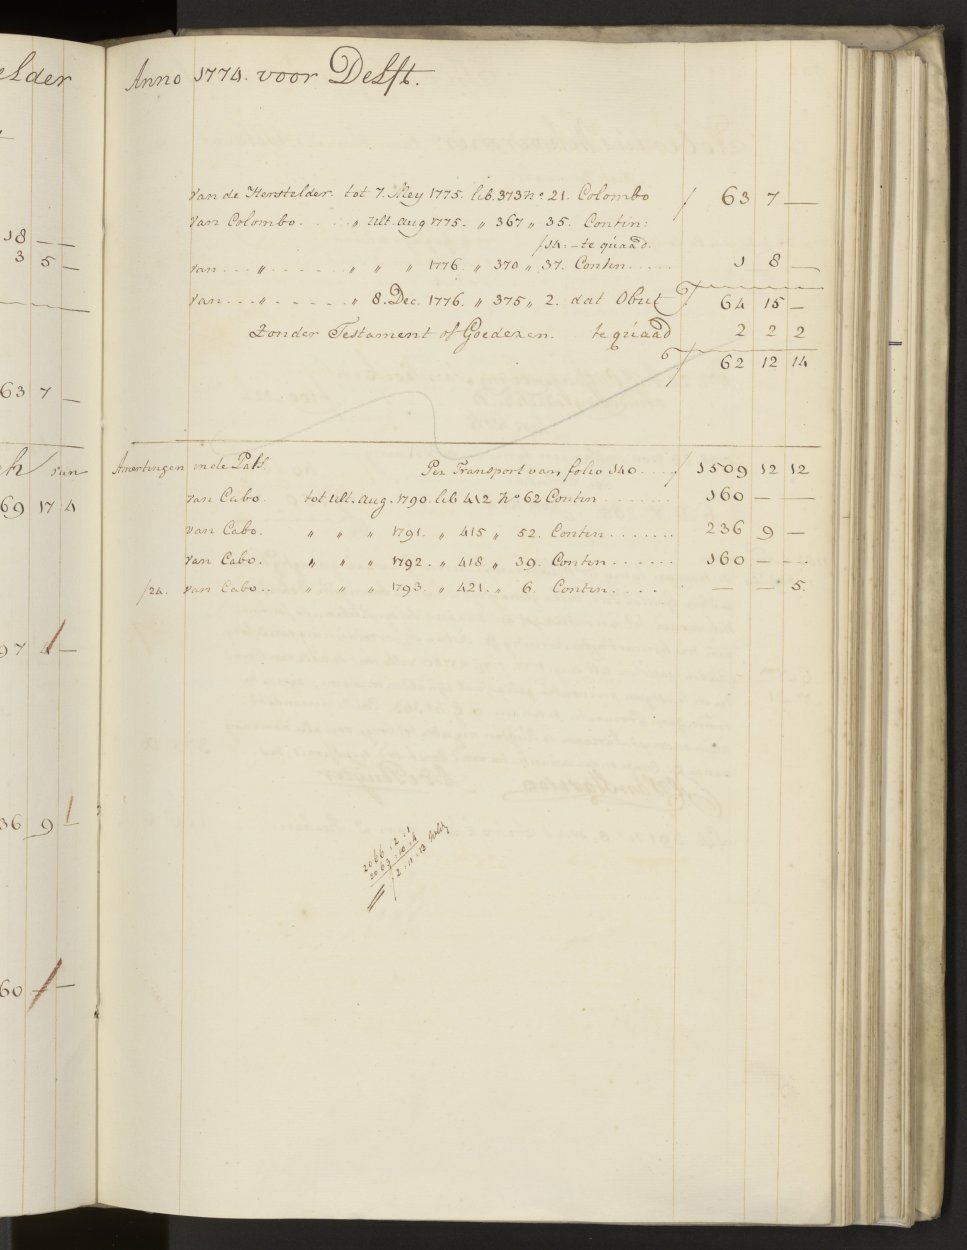 elder
18 — —
3 5 —
63 7 —
69 17 4
97 4 —
36 9 —
60 — —
Anno 1774. voor Delft.
van de Herstelder. tot 7. Mey 1775. lib. 373 No. 21. Colombo / 63 7 —
van Colombo. . . . „ ult. aug 1775. „ 367 „ 35. Contin:
/14: – te quaad.
van . . . „ . . . . . . „ „ „ 1776. „ 370 „ 37. Contin. . . . . 1 8 —
van . . . „ . . . . . „ 8. Dec. 1776. „ 375 „ 2. dat Obiit 64 15 —
Zonder Testament of Goederen. te quaad 2 2 2
6 / 62 12 14
in de Pass. Per Transport van folio 140 . . . / 1509 12 12
van Cabo. tot ult. aug. 1790. lib 412 No 62 Contin . . . . . . . 160 — —
van Cabo. „ „ „ 1791. „ 415 „ 52. Contin . . . . . . . 236 9 —
van Cabo. „ „ „ 1792. „ 418 „ 39. Contin . . . . . . 160 — —
/24. van Cabo. . „ „ „ 1793. „ 421. „ 6. Contin. . . . — — 5.
2066 . 2 . 1
2069 . 10 . 4
/ 2 . 11 . 13